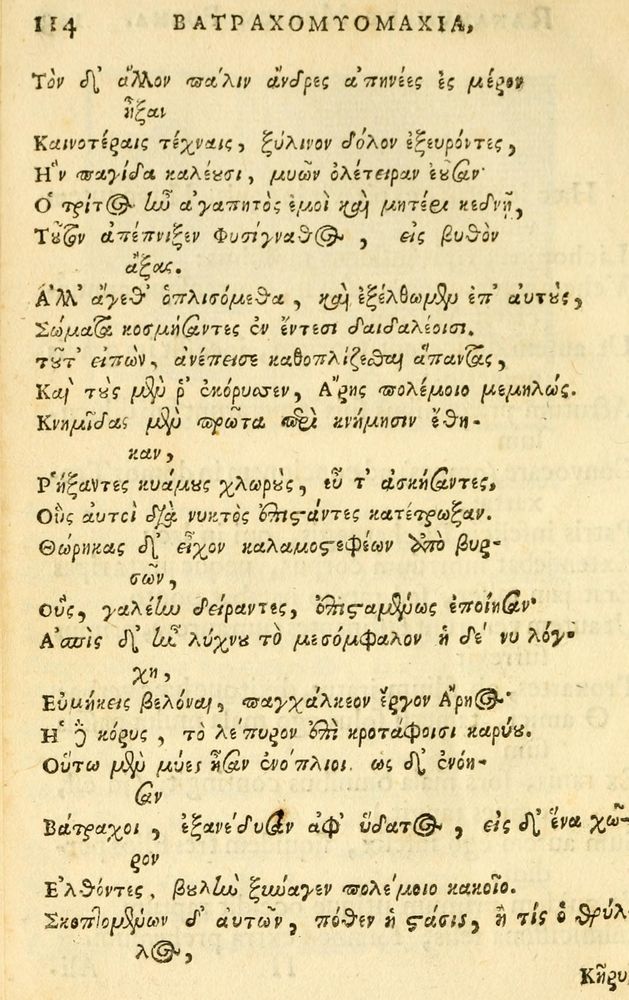 114 ΒΑΤΡΑΧΟΜΥΟΜΑΧΙΑ,
Τὸν δ᾽ ἄλλον πάλιν ἄνδρες ἀπηνέες ἐς μέρον
ἦξαν
Καινοτέραις τέχναις, ξύλινον δόλον ἐξευρόντες,
Ἣν παγίδα καλέουσι, μυῶν ὀλέτειραν ἐοῦσαν·
Ὁ τρίτος ἦν ἀγαπητὸς ἐμοὶ καὶ μητέρι κεδνῇ,
Τοῦτον ἀπέπνιξεν Φυσίγναθος, εἰς βυθὸν
ἄξας.
Ἀλλ᾽ ἄγεθ᾽ ὁπλισόμεθα, καὶ ἐξέλθωμεν ἐπ᾽ αυτοὺς,
Σώματα κοσμήσαντες ἐν ἔντεσι δαιδαλέοισι.
τοῦτ᾽ εἰπὼν, ἀνέπεισε καθοπλίζεσθαι ἅπαντας,
Καὶ τοὺς μὲν ῥ᾽ ἐκόρυσσεν, Ἄρης πολέμοιο μεμηλώς.
Κνημῖδας μὲν πρῶτα περὶ κνήμησιν ἔθη-
καν,
Ῥήξαντες κυάμους χλωροὺς, εὖ τ᾽ ἀσκήσαντες,
Οὓς αυτοὶ διὰ νυκτὸς ἐπιστάντες κατέτρωξαν.
Θώρηκας δ᾽ εἶχον καλαμοστεφέων ἀπὸ βυρ-
σῶν,
Οὓς, γαλέην δείραντες, ἐπισταμένως ἐποίησαν·
Ἀσπὶς δ᾽ ἦν λύχνου τὸ μεσόμφαλον ἡ δέ νυ λόγ-
χη,
Εὐμήκεις βελόναι, παγχάλκεον ἔργον Ἄρηος·
Ἡ δὲ κόρυς, τὸ λέπυρον ἐπὶ κροτάφοισι καρύου.
Οὕτω μὲν μύες ἦσαν ἐνόπλιοι. ως δ᾽ ἐνόη-
σαν
Βάτραχοι, ἐξανέδυσαν ἀφ᾽ ὕδατος, εἰς δ᾽ ἕνα χῶ-
ρον
Ἐλθόντες, βουλὴν ξύναγεν πολέμοιο κακοῖο.
Σκεπτομένων δ᾽ αυτῶν, πόθεν ἡ στάσις, ἢ τίς ὁ θρύλ-
λος,
Κῆρυ